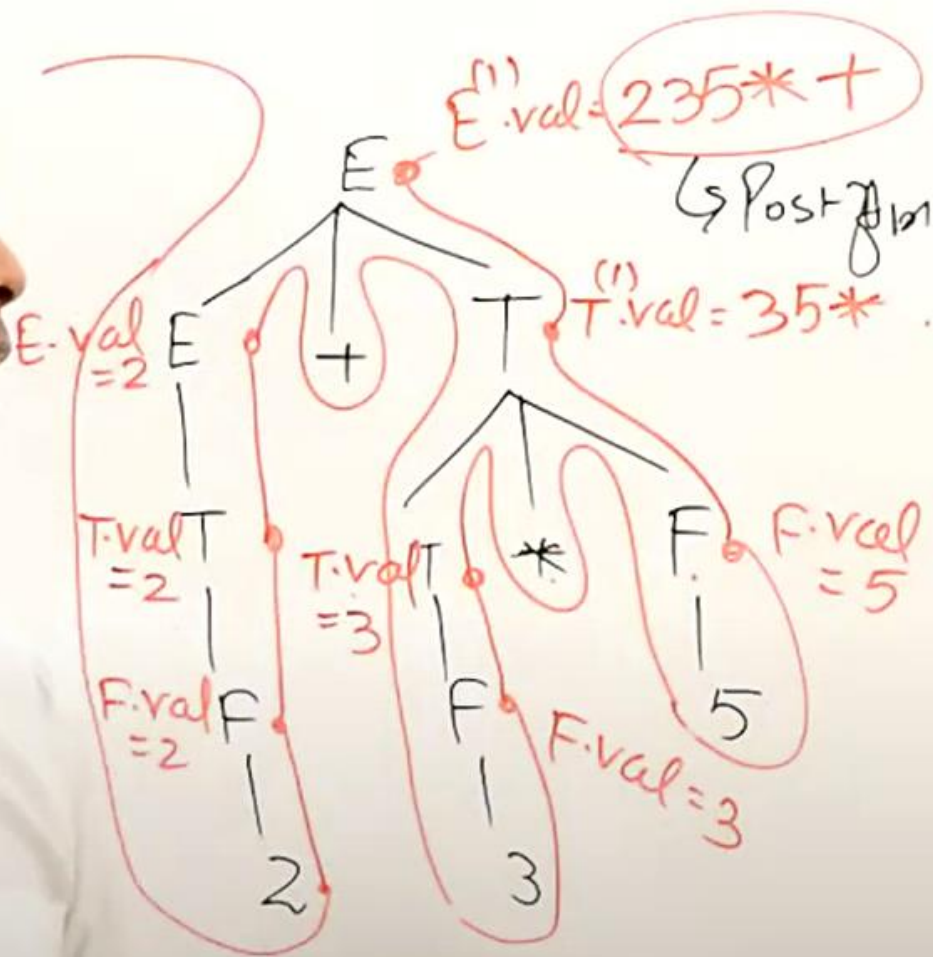 E⁽¹⁾.val = 235*+
E
↳ Post
E.val
=2
E
+
T
T⁽¹⁾.val = 35*
T.val
=2
T
T.val
=3
T
*
F
F.val
=5
F.val
=2
F
F
F.val=3
5
2
3